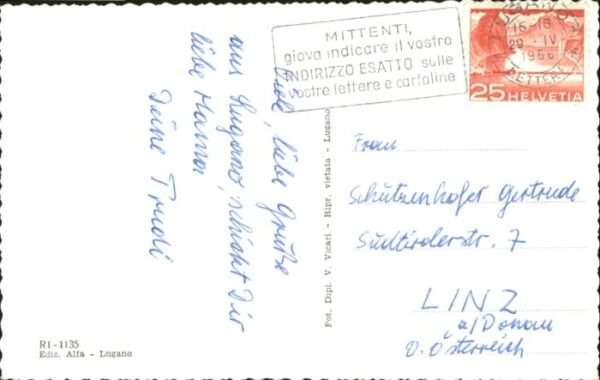 Viele, liebe Grüße
aus Lugano, schickt Dir
liebe Mama
Deine Trudi
MITTENTI,
giova indicare il vostro
INDIRIZZO ESATTO sulle
vostre lettere e cartoline
15-18
29 - IV
1956
LETTERE
25 HELVETIA
Fot. Dipl. V. Vicari - Ripr. vietata - Lugano
Frau
Schützenhofer Gertrude
Südtirolerstr. 7
LINZ
a/Donau
O. Österreich
R1-1135
Ediz. Alfa - Lugano